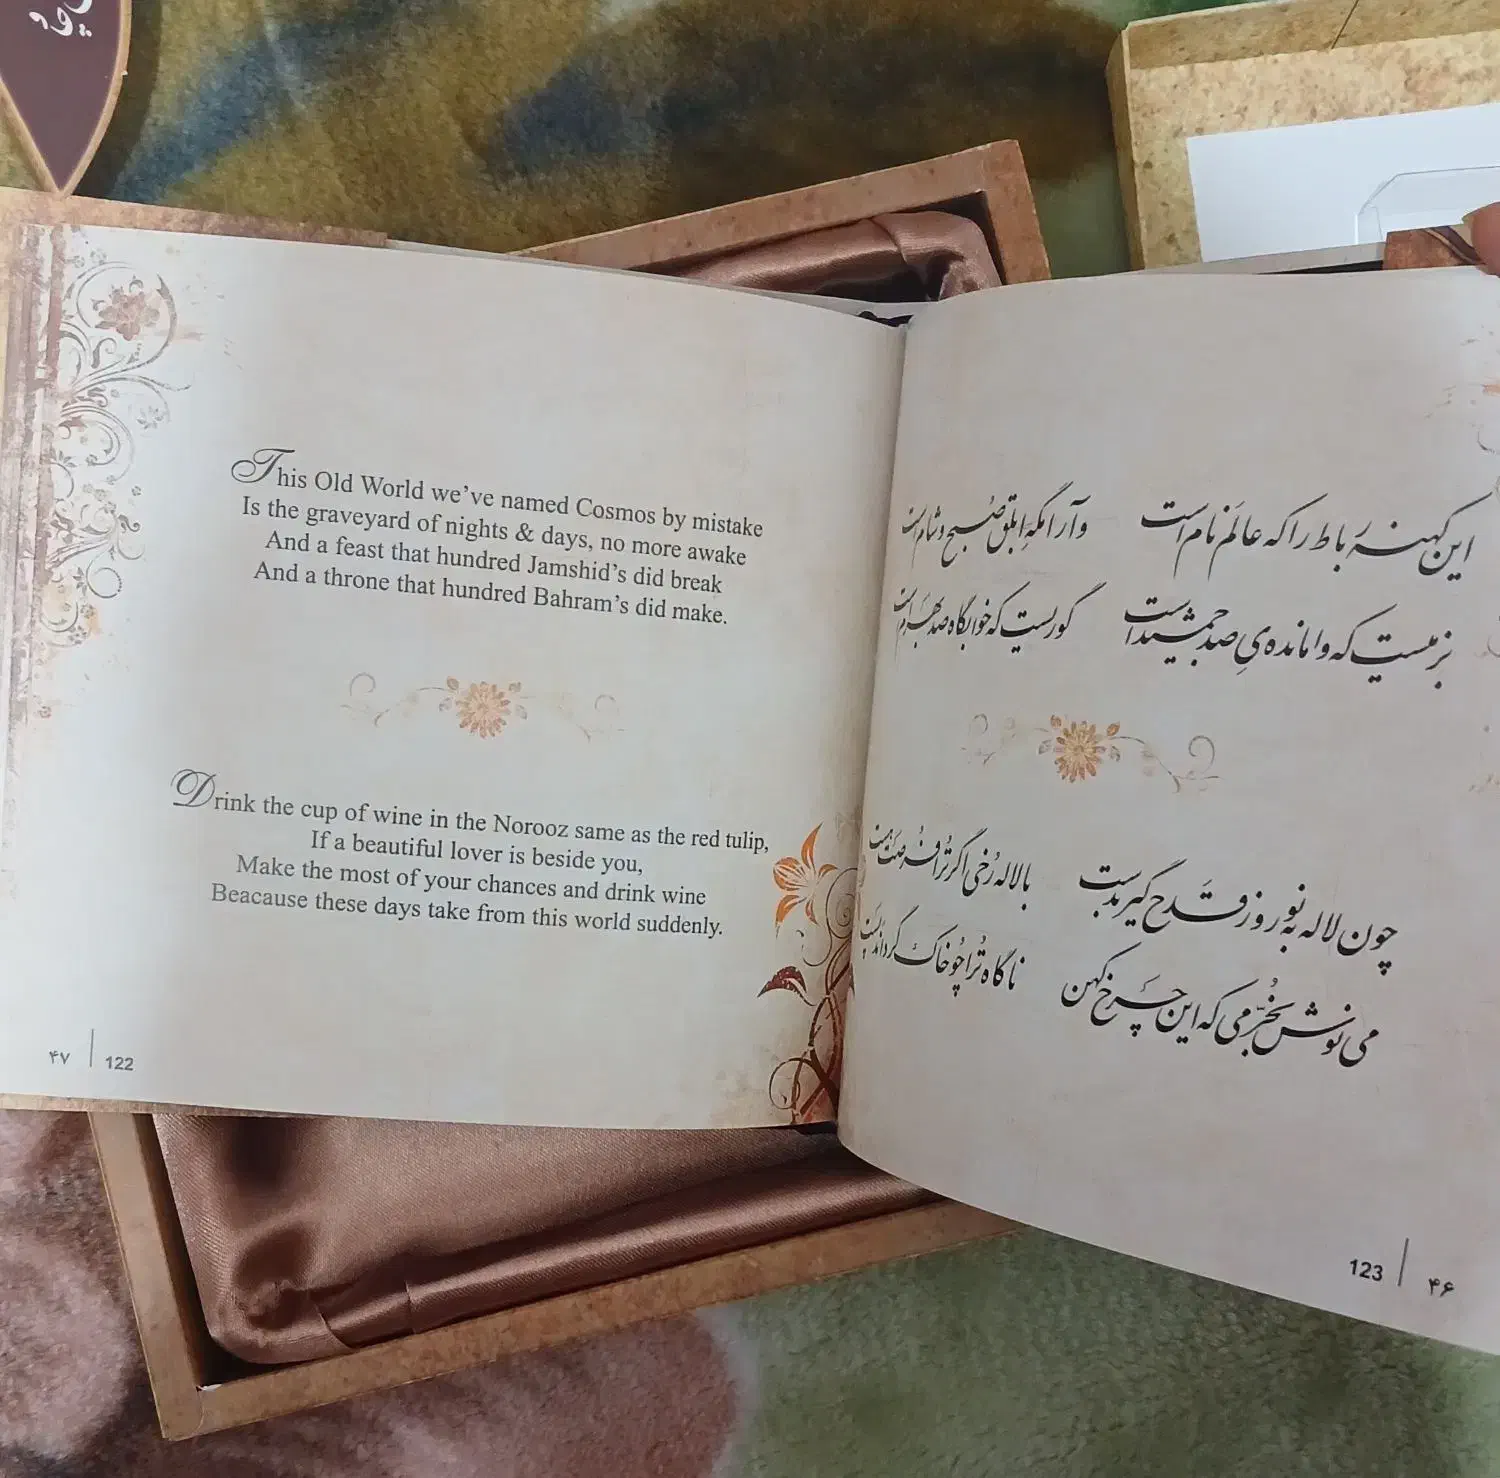 This Old World we've named Cosmos by mistake
Is the graveyard of nights & days, no more awake
And a feast that hundred Jamshid's did break
And a throne that hundred Bahram's did make.
Drink the cup of wine in the Norooz same as the red tulip,
If a beautiful lover is beside you,
Make the most of your chances and drink wine
Beacause these days take from this world suddenly.
۴۷ | 122
این کهنه رَباط را که عالَم نام است وآرامگهِ ابلق صُبح و شام است
بزمیست که وامانده‌یِ صد جمشید است گوریست که خوابگاه صد بهرام است
چون لاله به نوروز قَدح گیر بدست با لاله رُخی اگر تُرا فُرصَت هست
می نوش بخُرّمی که این چَرخ کهن ناگاه تُرا چُو خاک گرداند پَست
123 | ۴۶